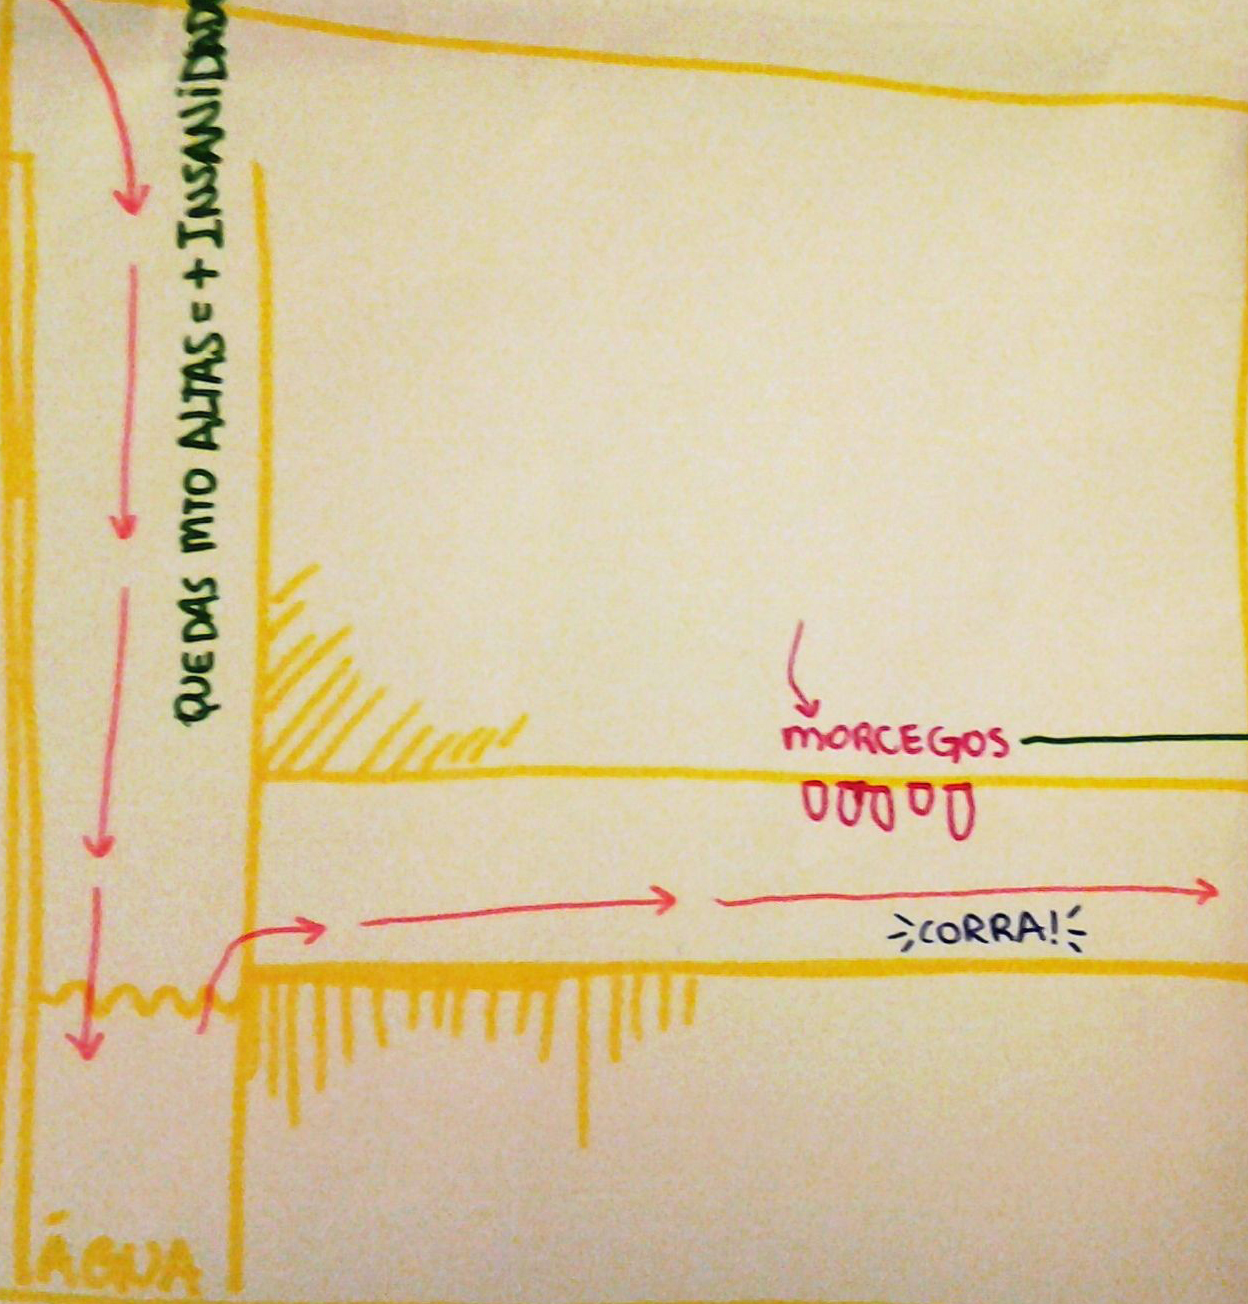 QUEDAS MTO ALTAS = + INSANIDADE
MORCEGOS
CORRA!
ÁGUA